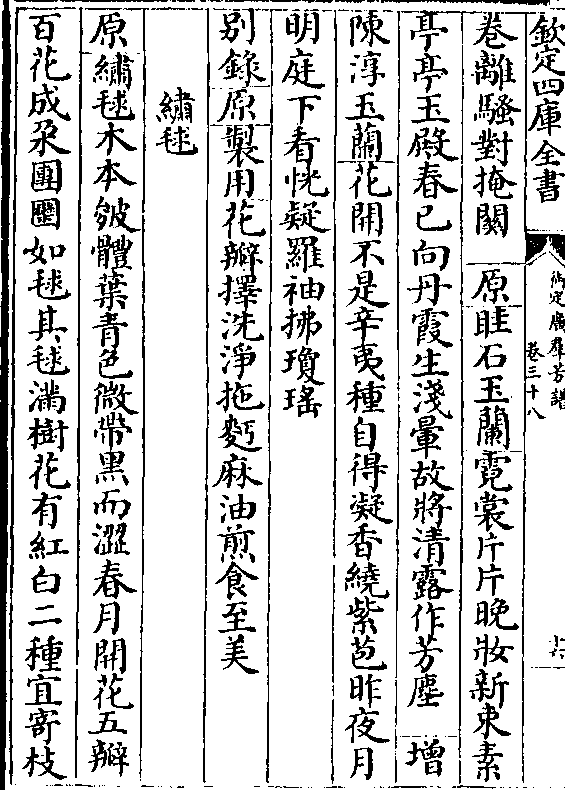 欽定四庫全書
御定廣群芳譜
卷三十八
十六
卷離騷對掩闗　原眭石玉蘭霓裳片片晚妝新束素
亭亭玉殿春已向丹霞生淺暈故將清露作芳塵　增
陳淳玉蘭花開不是辛夷種自得凝香繞紫苞昨夜月
明庭下看恍疑羅袖拂瓊瑤
別錄原製用花瓣擇洗淨拖麪麻油煎食至美
繡毬
原繡毬木本皴體葉青色微帶黑而澀春月開花五瓣
百花成朶團圞如毬其毬滿樹花有紅白二種宜寄枝